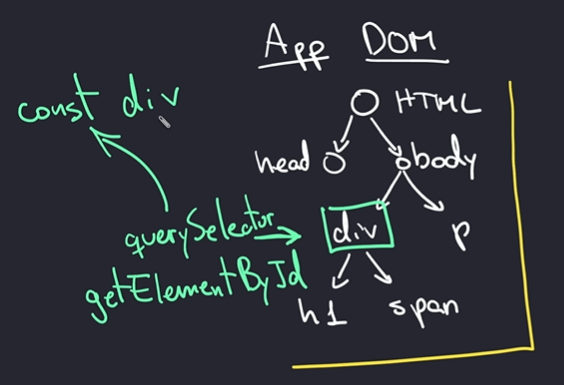 App DOM
const div
HTML
head
body
querySelector
div
p
getElementById
h1
span